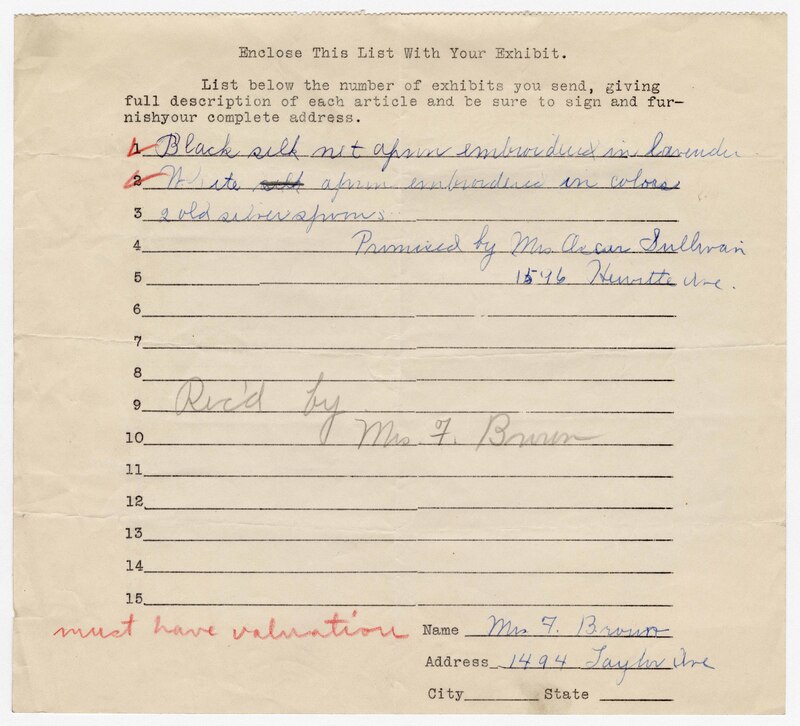 Enclose This List With Your Exhibit.
List below the number of exhibits you send, giving
full description of each article and be sure to sign and fur-
nishyour complete address.
1 Black silk net apron embroidered in lavender
2 White silk apron embroidered in colors
3 2 old silver spoons
4 Promised by Mrs Oscar Sullivan
5 1596 Hewitte Ave.
6
7
8
9 Rec'd by
10 Mrs. F. Brown
11
12
13
14
15
must have valuation
Name Mrs F. Brown
Address 1494 Taylor Ave
City State